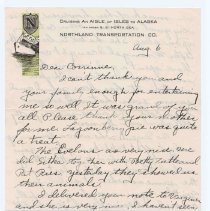 N
CRUISING AN AISLE OF ISLES TO ALASKA
NORTHLAND TRANSPORTATION CO.
Aug 6
Dear Corrinne,
I can't thank you and
your family enough for entertaining
me so well. It was grand of you
all. Please thank your mother
for me. Loganberry pie was quite
a treat.
The Evelens are very nice. We
did Sitka together with Betty Tuttle and
Pat Russ yesterday they showed us
their animals.
I delivered your note to
and she is very nice. I haven't seen